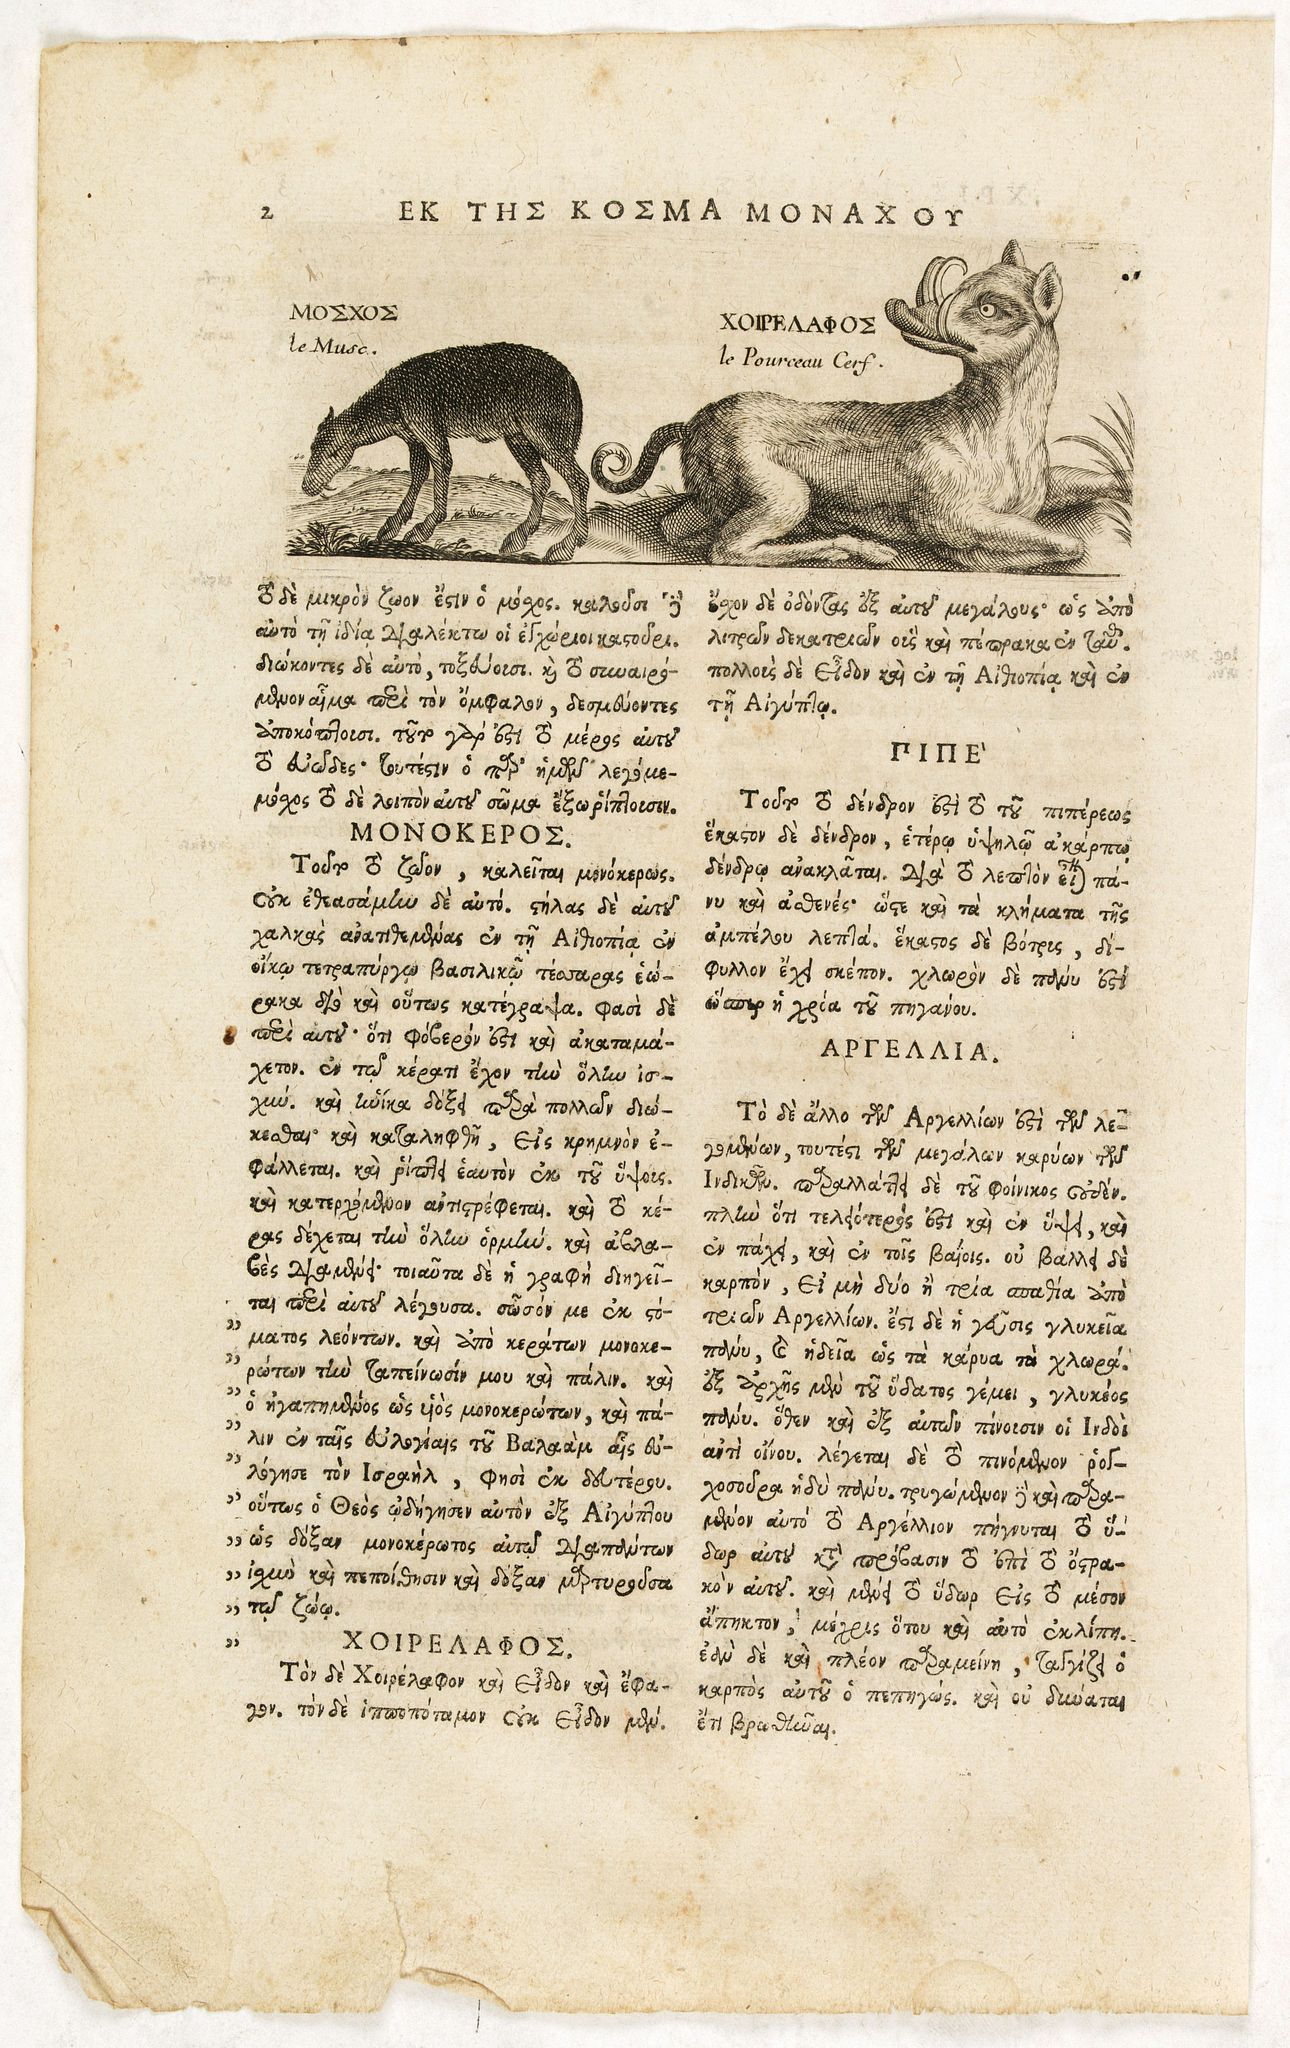 2
ΕΚ ΤΗΣ ΚΟΣΜΑ ΜΟΝΑΧΟΥ
ΜΟΣΧΟΣ
le Musc.
ΧΟΙΡΕΛΑΦΟΣ
le Pourceau Cerf.
τὸ δὲ μικρὸν ζωον ἔϛιν ὁ μόχος. καλοῦσι
αὐτὸ τῇ ἰδίᾳ διαλέκτω οἱ ἐγχώριοι καϛοῦρι.
διώκοντες δὲ αὐτὸ, τοξεύουσι. καὶ τὸ συναιρό-
μενον αἷμα περὶ τὸν ὄμφαλον, δεσμεύοντες
ἀποκόπτουσι. τοῦτο γὰρ ἐϛὶ τὸ μέρος αὐτοῦ
τὸ εὐῶδες· τουτέϛιν ὁ παρ' ἡμῶν λεγόμε-
μόχος τὸ δὲ λοιπὸν αὐτοῦ σῶμα ἔξω ῥίπτουσιν.
ΜΟΝΟΚΕΡΟΣ.
Τοῦτο τὸ ζῶον, καλεῖται μονόκερως.
οὐκ ἐθεασάμην δὲ αὐτό. ϛήλας δὲ αὐτοῦ
χαλκὰς ἀνατιθεμένας ἐν τῇ Αἰθιοπίᾳ ἐν
οἴκῳ τετραπύργῳ βασιλικῷ τέσσαρας ἑώ-
ρακα διὸ καὶ οὕτως κατέγραψα. φασὶ δὲ
περὶ αὐτοῦ· ὅτι φόβερόν ἐϛι καὶ ἀκαταμά-
χετον. ἐν τῷ κέρατι ἔχον τὴν ὅλην ἰσ-
χύν. καὶ ἡνίκα δόξει παρὰ πολλῶν διώ-
κεσθαι καὶ καταληφθῇ, εἰς κρημνὸν ἐ-
φάλλεται. καὶ ῥίπτει ἑαυτὸν ἐκ τοῦ ὕψους.
καὶ κατερχόμενον ἀντιϛρέφεται. καὶ τὸ κέ-
ρας δέχεται τὴν ὅλην ὁρμήν. καὶ ἀβλα-
βὲς διαμένει· τοιαῦτα δὲ ἡ γραφὴ διηγεῖ-
ται περὶ αὐτοῦ λέγουσα. σῶσόν με ἐκ ϛό-
ματος λεόντων. καὶ ἀπὸ κεράτων μονοκε-
ρώτων τὴν ταπείνωσίν μου καὶ πάλιν. καὶ
ὁ ἠγαπημένος ὡς υἱὸς μονοκερώτων, καὶ πά-
λιν ἐν ταῖς εὐλογίαις τοῦ Βαλαὰμ αἷς εὐ-
λόγησε τὸν Ισραὴλ, φησὶ ἐκ δευτέρου.
οὕτως ὁ Θεὸς ὡδήγησεν αὐτὸν ἐξ Αἰγύπτου
ὡς δόξαν μονοκέρωτος αὐτῷ διαπάντων
ἰσχὺν καὶ πεποίθησιν καὶ δόξαν μαρτυροῦσα
τῷ ζώῳ.
ΧΟΙΡΕΛΑΦΟΣ.
Τὸν δὲ Χοιρέλαφον καὶ εἶδον καὶ ἔφα-
γον. τὸν δὲ ἱπποπόταμον οὐκ εἶδον μέν.
ἔχον δὲ ὀδόντας ἐξ αὐτοῦ μεγάλους· ὡς ἀπὸ
λιτρῶν δεκατριῶν οὓς καὶ πέπρακα ἐν ταῦθ.
πολλοὺς δὲ εἶδον καὶ ἐν τῇ Αἰθιοπίᾳ καὶ ἐν
τῇ Αἰγύπτῳ.
ΠΙΠΕ
Τοῦτο τὸ δένδρον ἐϛὶ τὸ τοῦ πιπέρεως
ἕκαϛον δὲ δένδρον, ἑτέρῳ ὑψηλῷ ἀκάρπῳ
δένδρῳ ἀνακλᾶται. διὰ τὸ λεπτὸν εἶναι πά-
νυ καὶ ἀσθενές· ὥϛε καὶ τὰ κλήματα τῆς
ἀμπέλου λεπτά. ἕκαϛος δὲ βότρις, δί-
φυλλον ἔχει σκέπον. χλωρὸν δὲ πάνυ ἐϛι
ὥσπερ ἡ χρία τοῦ πηγάνου.
ΑΡΓΕΛΛΙΑ.
Τὸ δὲ ἄλλο τῶν Αργελλίων ἐϛὶ τῶν λε-
γομένων, τουτέϛι τῶν μεγάλων καρύων τῶν
Ινδικῶν. παραλλάττει δὲ τοῦ φοίνικος οὐδέν.
πλὴν ὅτι τελειότερός ἐϛι καὶ ἐν ὕψει, καὶ
ἐν πάχει, καὶ ἐν τοῖς βαΐοις. οὐ βάλλει δὲ
καρπὸν, εἰ μὴ δύο ἢ τρία σπαθία ἀπὸ
τριῶν Αργελλίων. ἔϛι δὲ ἡ γεῦσις γλυκεῖα
πάνυ, καὶ ἡδεῖα ὡς τὰ κάρυα τὰ χλωρά.
ἐξ ἀρχῆς μὲν τοῦ ὕδατος γέμει, γλυκέος
πάνυ. ὅθεν καὶ ἐξ αὐτῶν πίνουσιν οἱ Ινδοὶ
ἀντὶ οἴνου. λέγεται δὲ τὸ πινόμενον ῥο-
χοσοῦρα ἡδὺ πάνυ. τρυγώμενον δὲ καὶ παρα-
μένον αὐτὸ τὸ Αργέλλιον πήγνυται τὸ ὕ-
δωρ αὐτοῦ κατὰ πρόβασιν τὸ ἐπὶ τὸ ὄϛρα-
κον αὐτοῦ. καὶ μένει τὸ ὕδωρ εἰς τὸ μέσον
ἄπηκτον, μέχρις ὅτου καὶ αὐτὸ ἐκλίπη.
ἐὰν δὲ καὶ πλέον παραμείνη, ταγγίζει ὁ
καρπὸς αὐτοῦ ὁ πεπηγώς. καὶ οὐ δύναται
ἔτι βρωθῆναι.